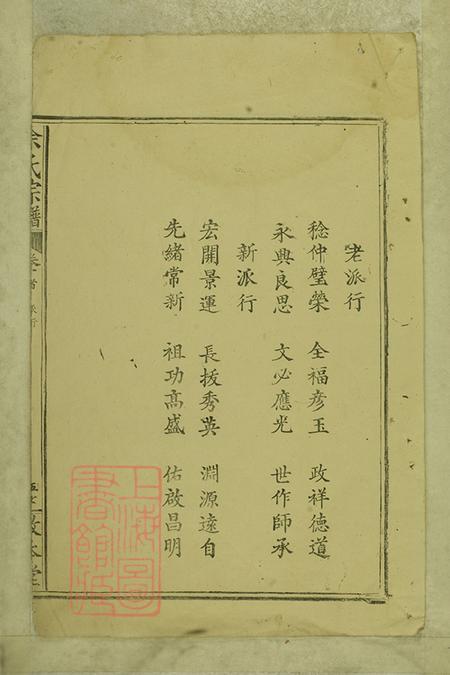 老派行
稔仲璧榮 全福彥玉 政祥德道
永興良思 文必應光 世作師承
新派行
宏開景運 長拔秀英 淵源遠自
先緒常新 祖功高盛 佑啟昌明
余氏宗譜 卷首 派行
上海圖書館藏